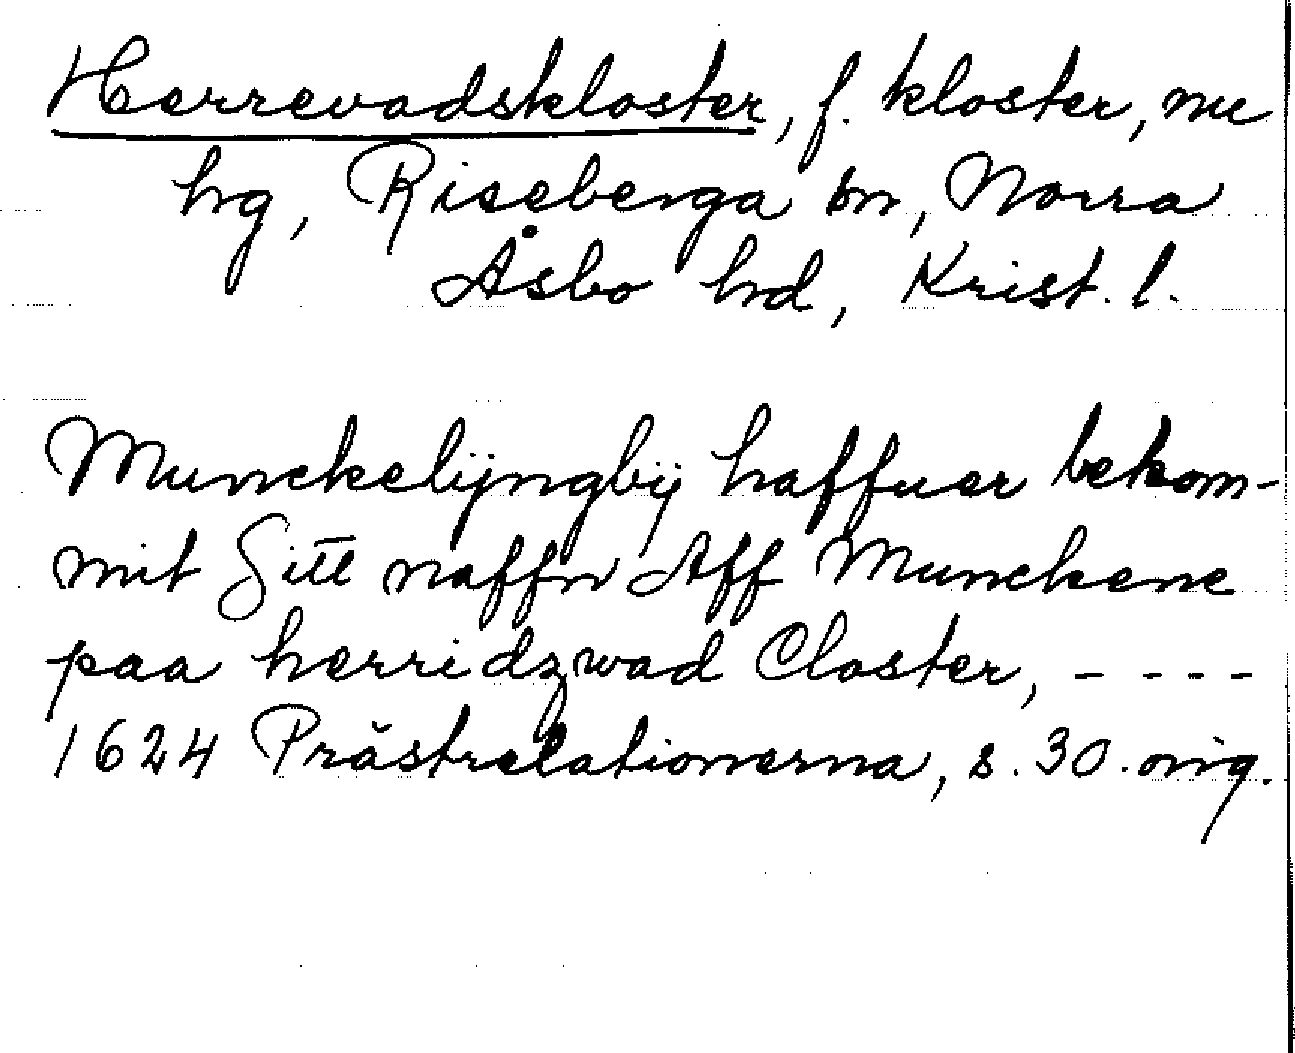 Herrevadskloster, f. kloster, nu
hg, Riseberga sn, Norra
Åsbo hd, Krist. l.
Munckelijngbij haffuer bekom-
mit Sitt naffn Aff Munckene
paa herridzwad Closter, - - - -
1624 Prästrelationerna, s. 30. orig.